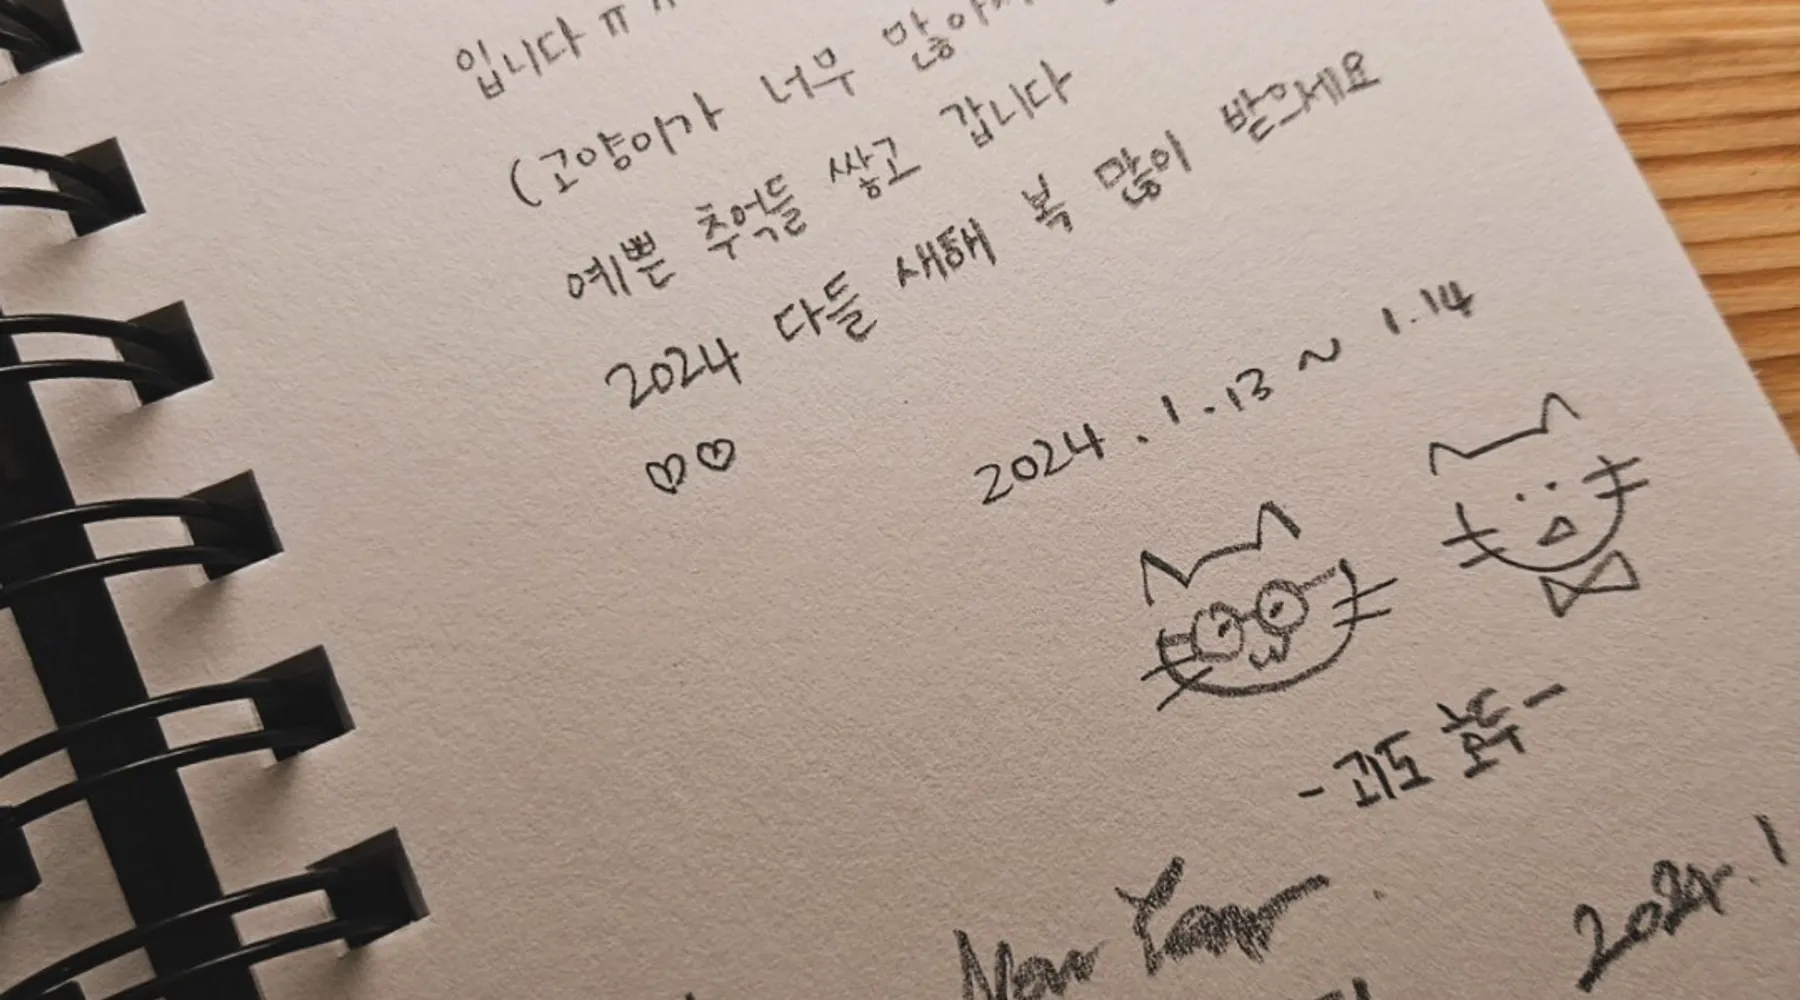 입니다ㅠㅠ
(고양이가 너무 많아
예쁜 추억들 쌓고 갑니다
2024 다들 새해 복 많이 받으세요
♡♡
2024.1.13 ~ 1.14
-괴도 쭈-
New Year
2024.1